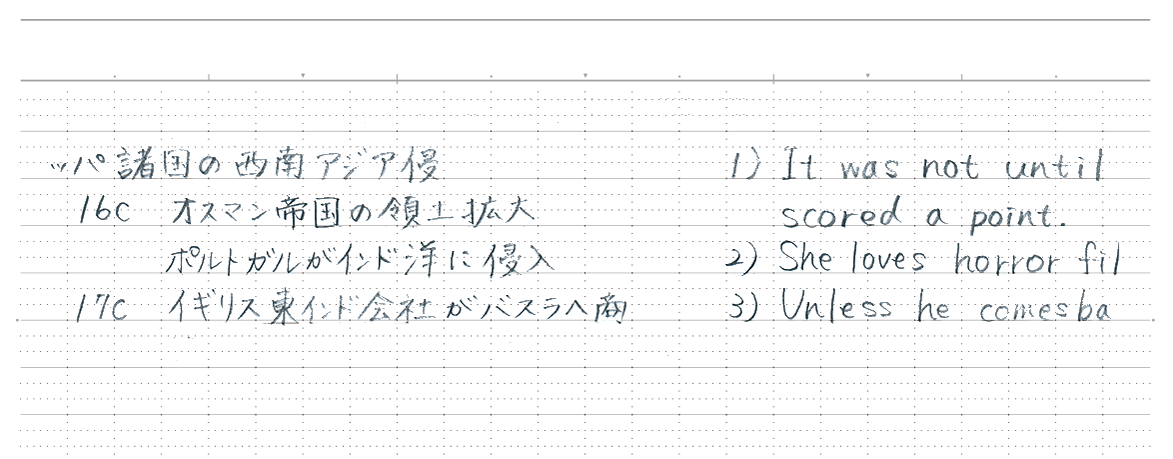 ッパ諸国の西南アジア侵
16C オスマン帝国の領土拡大
ポルトガルがインド洋に侵入
17C イギリス東インド会社がバスラへ商
1) It was not until
scored a point.
2) She loves horror fil
3) Unless he comes ba